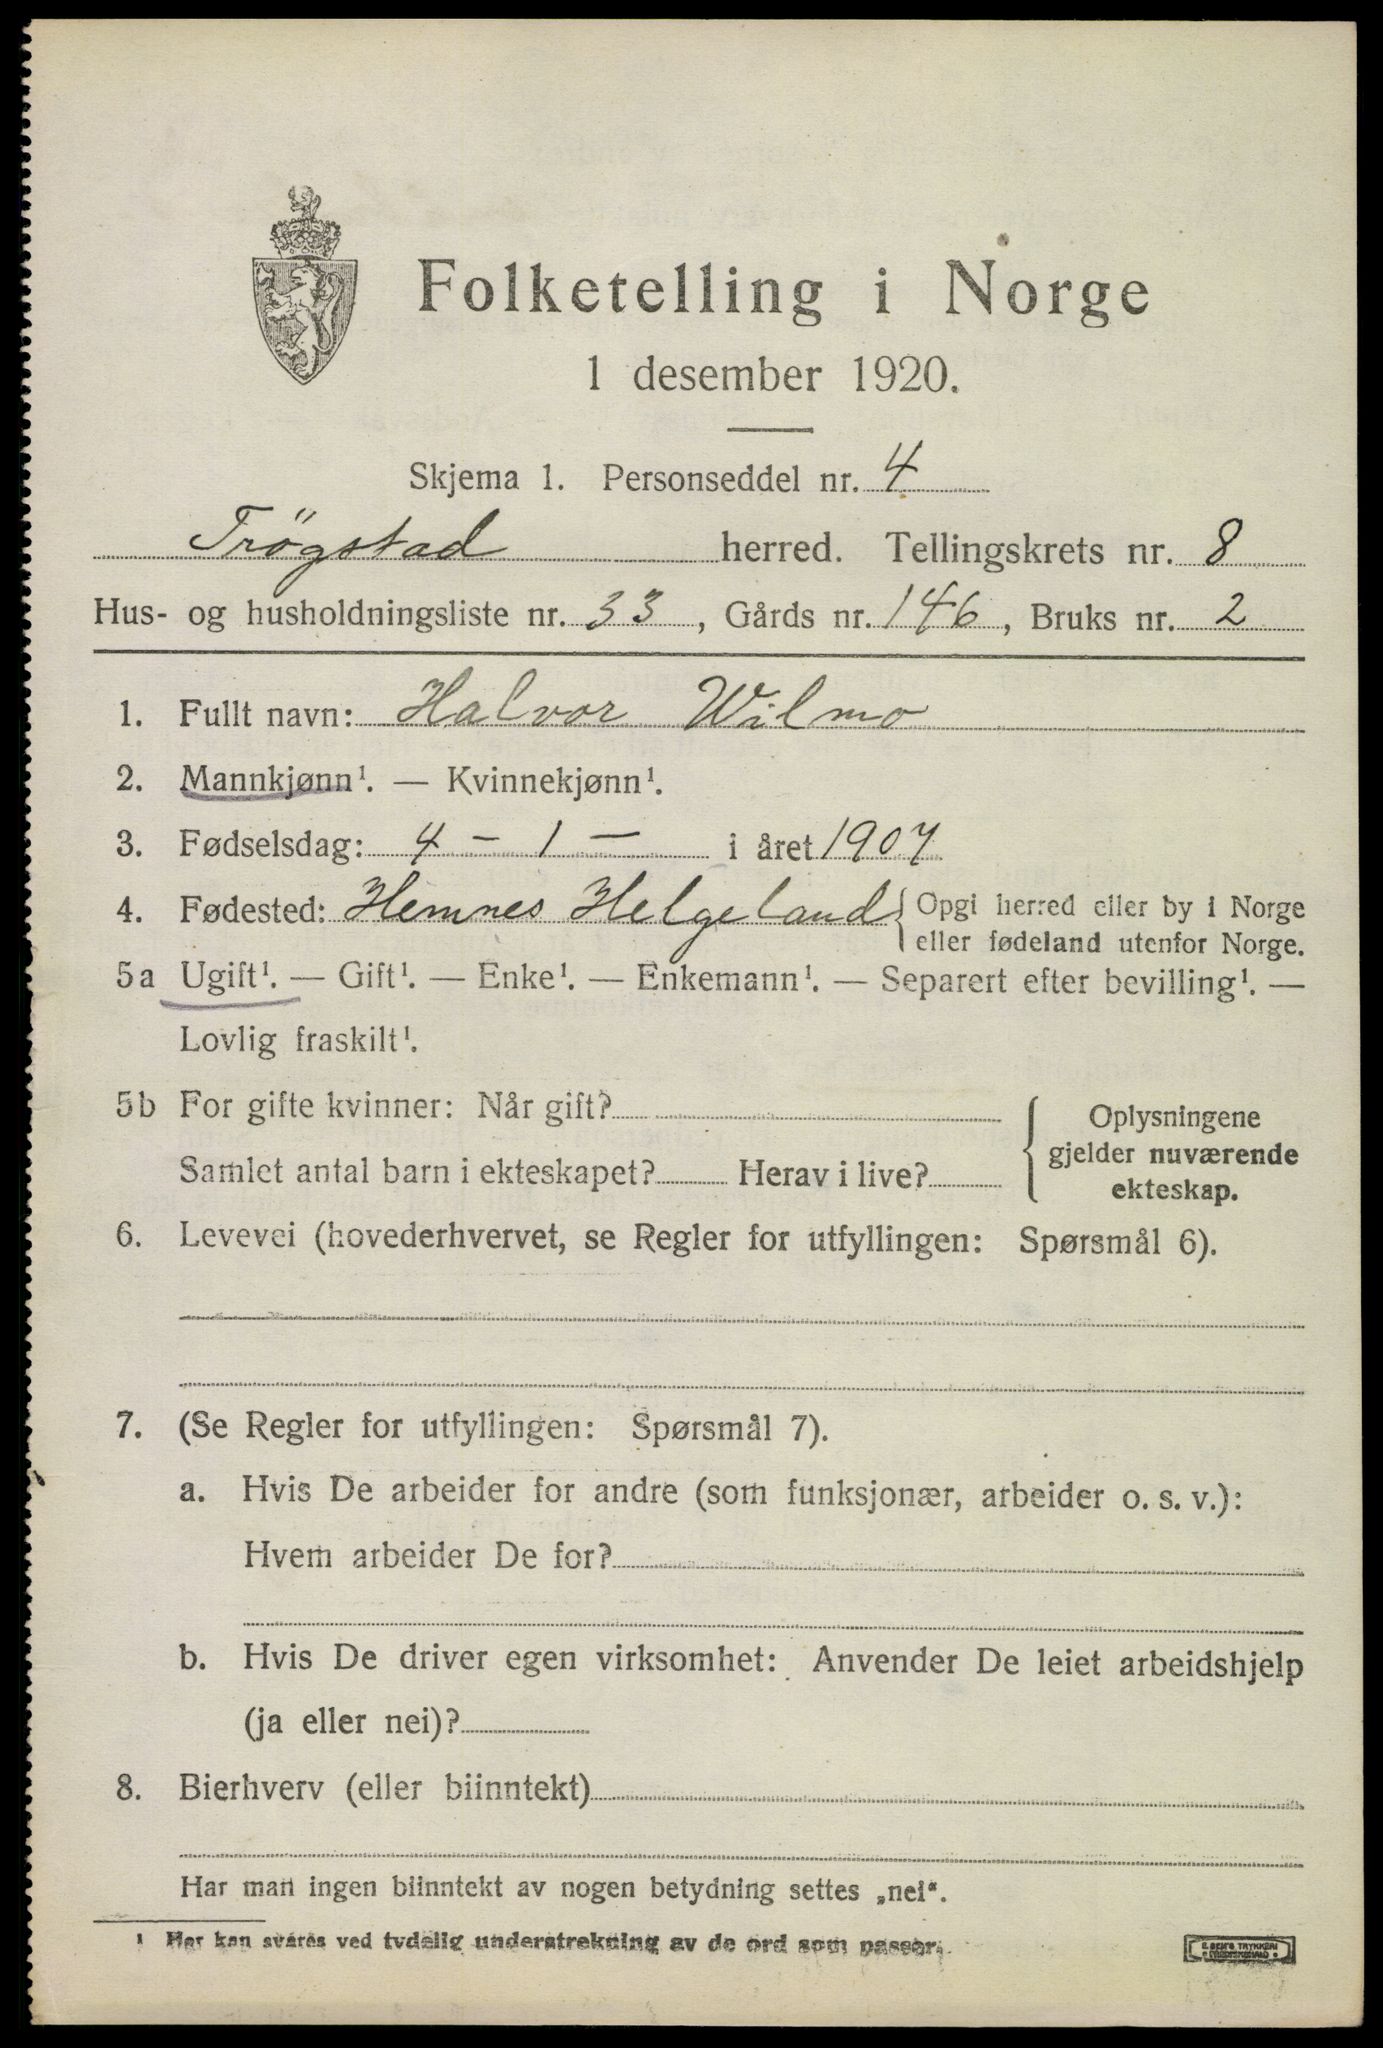 Folketelling i Norge
1 desember 1920.
Skjema 1. Personseddel nr. 4
Trögstad herred. Tellingskrets nr. 8
Hus- og husholdningsliste nr. 33, Gårds nr. 146, Bruks nr. 2
1. Fullt navn: Halvor Wilmo
2. Mannkjønn¹. — Kvinnekjønn¹.
3. Fødselsdag: 4 - 1 - i året 1907
4. Fødested: Hemnes Helgeland { Opgi herred eller by i Norge
eller fødeland utenfor Norge.
5a Ugift¹. — Gift¹. — Enke¹. — Enkemann¹. — Separert efter bevilling¹. —
Lovlig fraskilt¹.
5b For gifte kvinner: Når gift?
Samlet antal barn i ekteskapet? Herav i live?
{ Oplysningene
gjelder nuværende
ekteskap.
6. Levevei (hovederhvervet, se Regler for utfyllingen: Spørsmål 6).
7. (Se Regler for utfyllingen: Spørsmål 7).
a. Hvis De arbeider for andre (som funksjonær, arbeider o. s. v.):
Hvem arbeider De for?
b. Hvis De driver egen virksomhet: Anvender De leiet arbeidshjelp
(ja eller nei)?
8. Bierhverv (eller biinntekt)
Har man ingen biinntekt av nogen betydning settes „nei“.
¹ Her kan svares ved tydelig understrekning av de ord som passer.